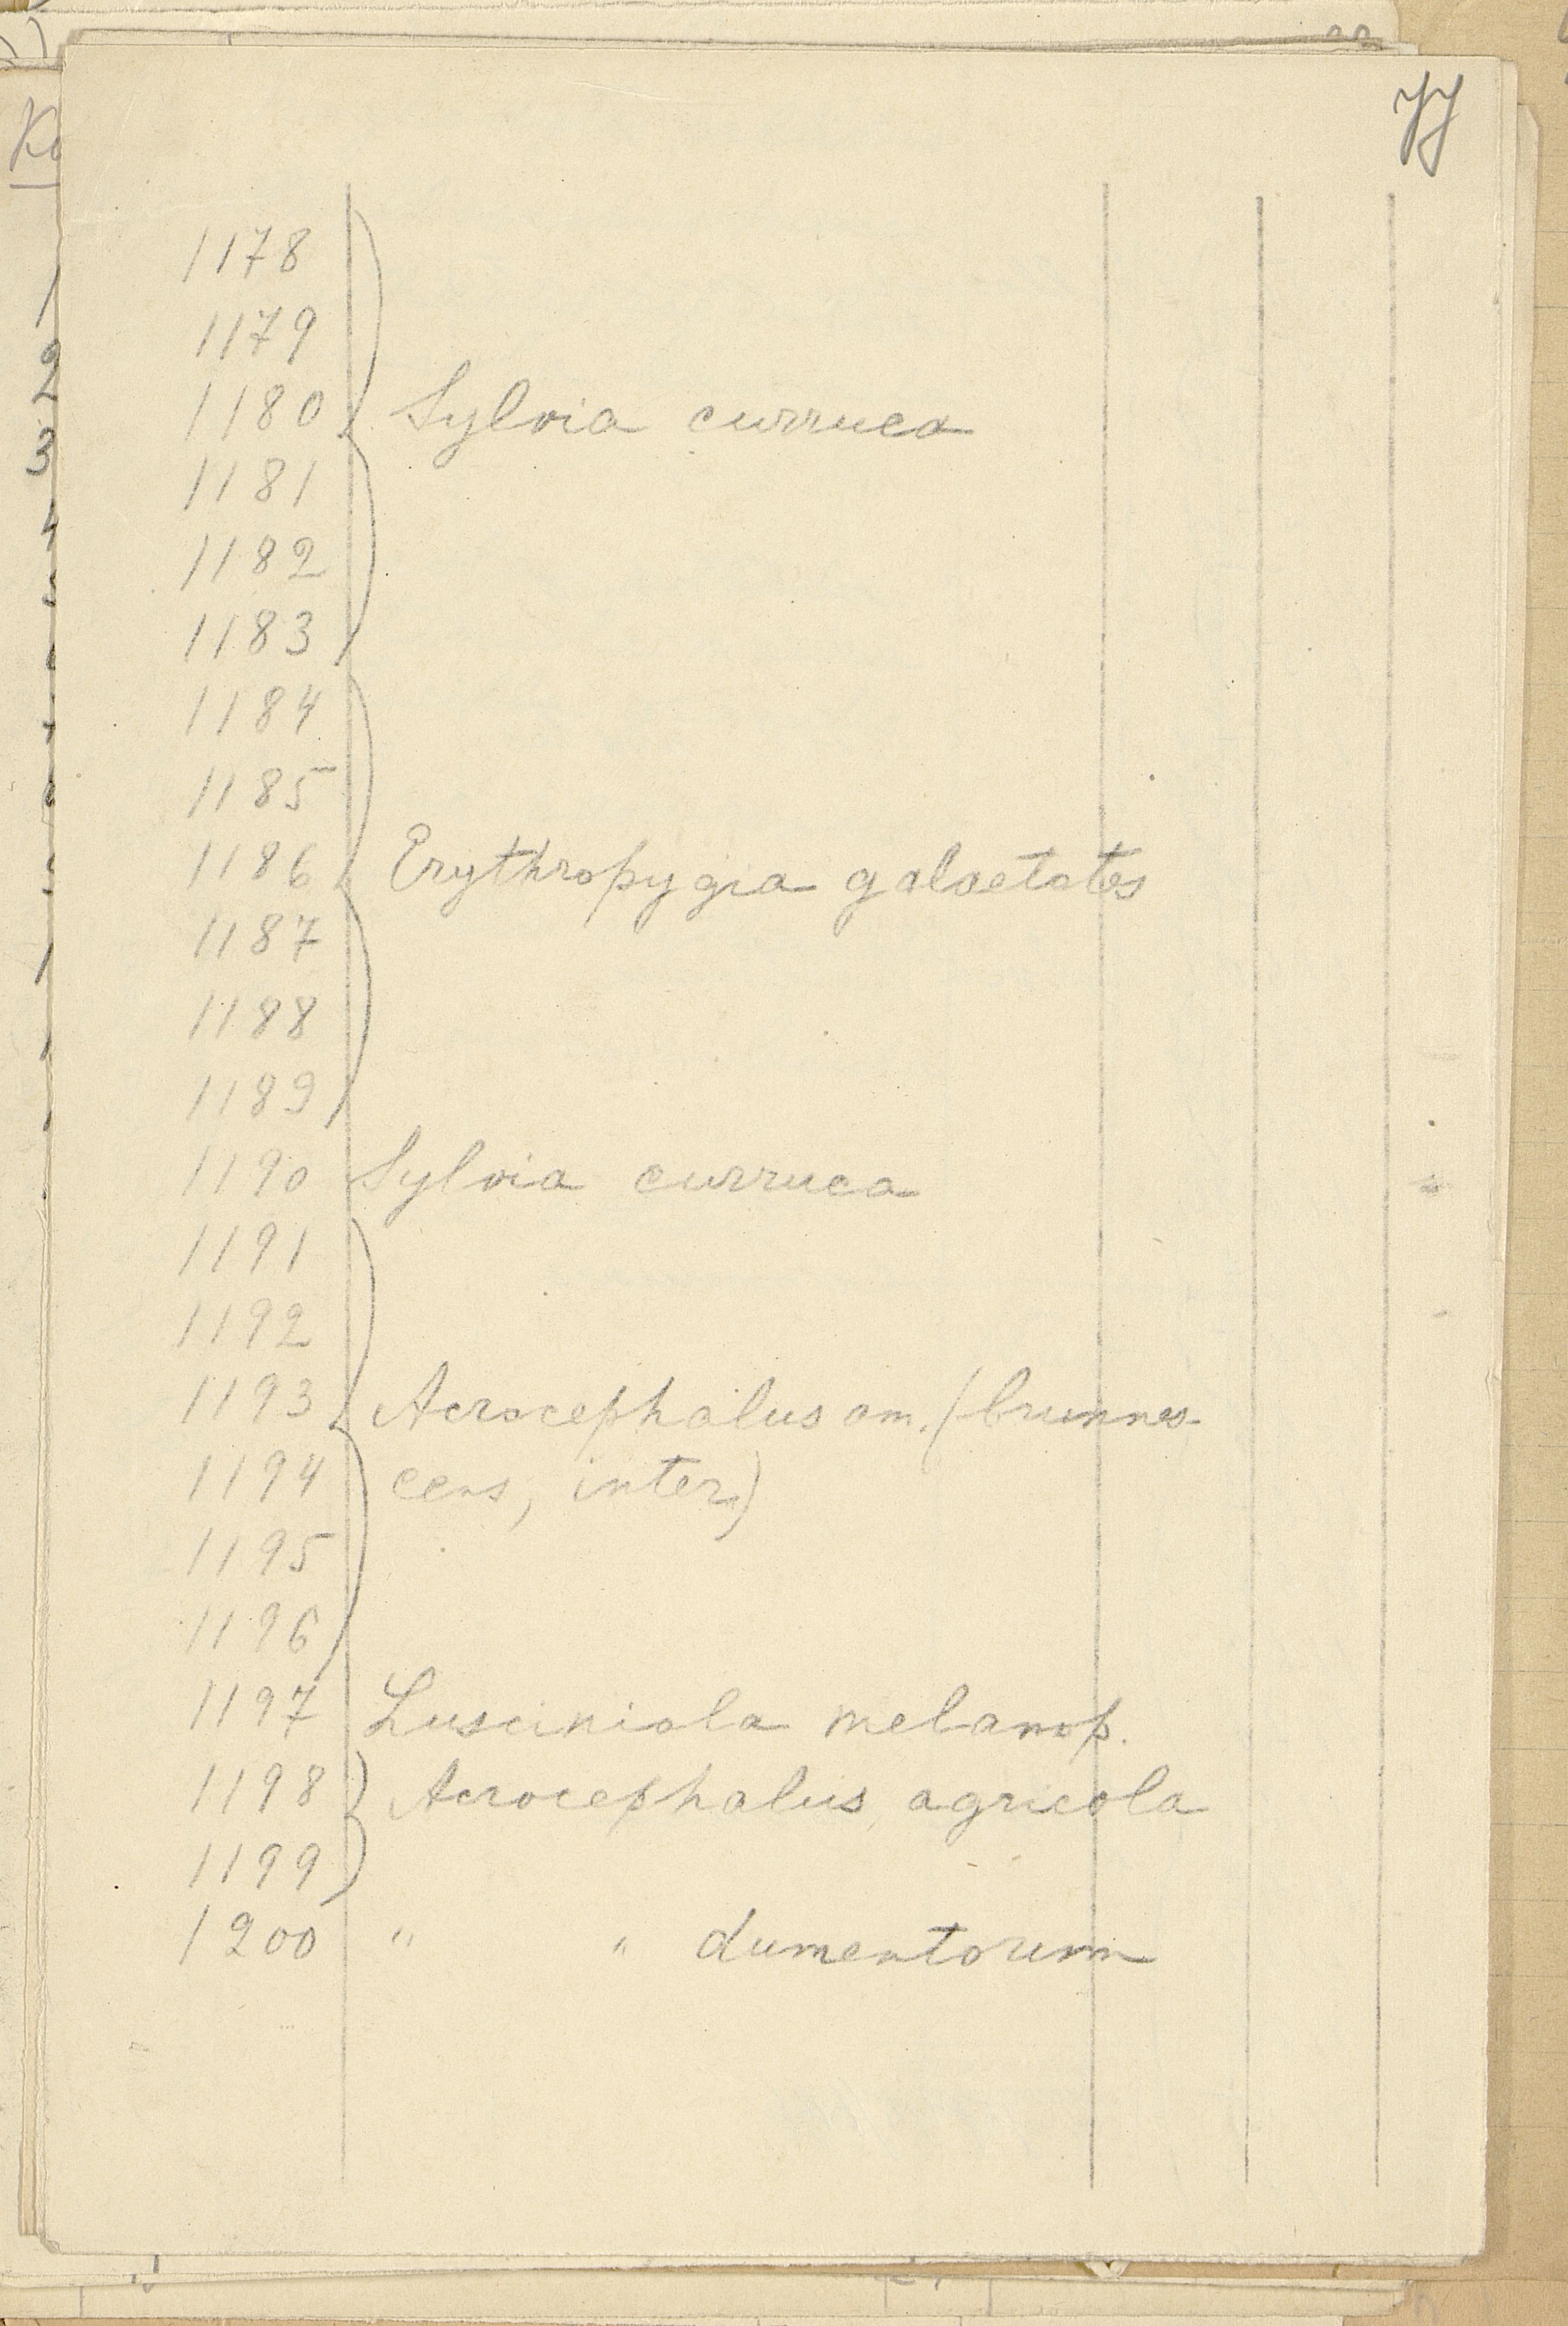 77
1178
1179
1180 Sylvia curruca
1181
1182
1183
1184
1185
1186 Erythropygia galactotes
1187
1188
1189
1190 Sylvia curruca
1191
1192
1193 Acrocephalus am. (brunnes-
1194 cens, inter)
1195
1196
1197 Lusciniola melanop.
1198 Acrocephalus agricola
1199
1200 " " dumentorum